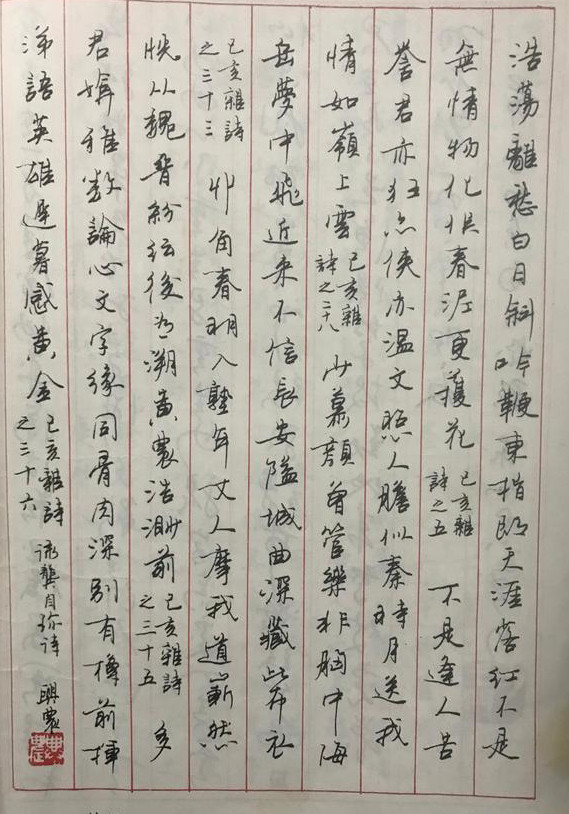 浩蕩離愁白日斜吟鞭東指即天涯落紅不是
無情物化作春泥更護花 己亥雜詩之五 不是逢人苦
譽君亦狂亦俠亦溫文照人膽似秦時月送我
情如嶺上雲 己亥雜詩之二八 少慕顏曾管樂非胸中海
岳夢中飛近來不信長安隘城曲深藏此布衣
己亥雜詩之三十三 丱角春明入塾年丈人摩我道嶄然
恍从魏晉紛紜後為溯黃農浩渺前 己亥雜詩之三十五 多
君媕雅數論心文字緣同骨肉深別有樽前揮
涕語英雄遲暮感黃金 己亥雜詩之三十六 龔自珍詩 興農